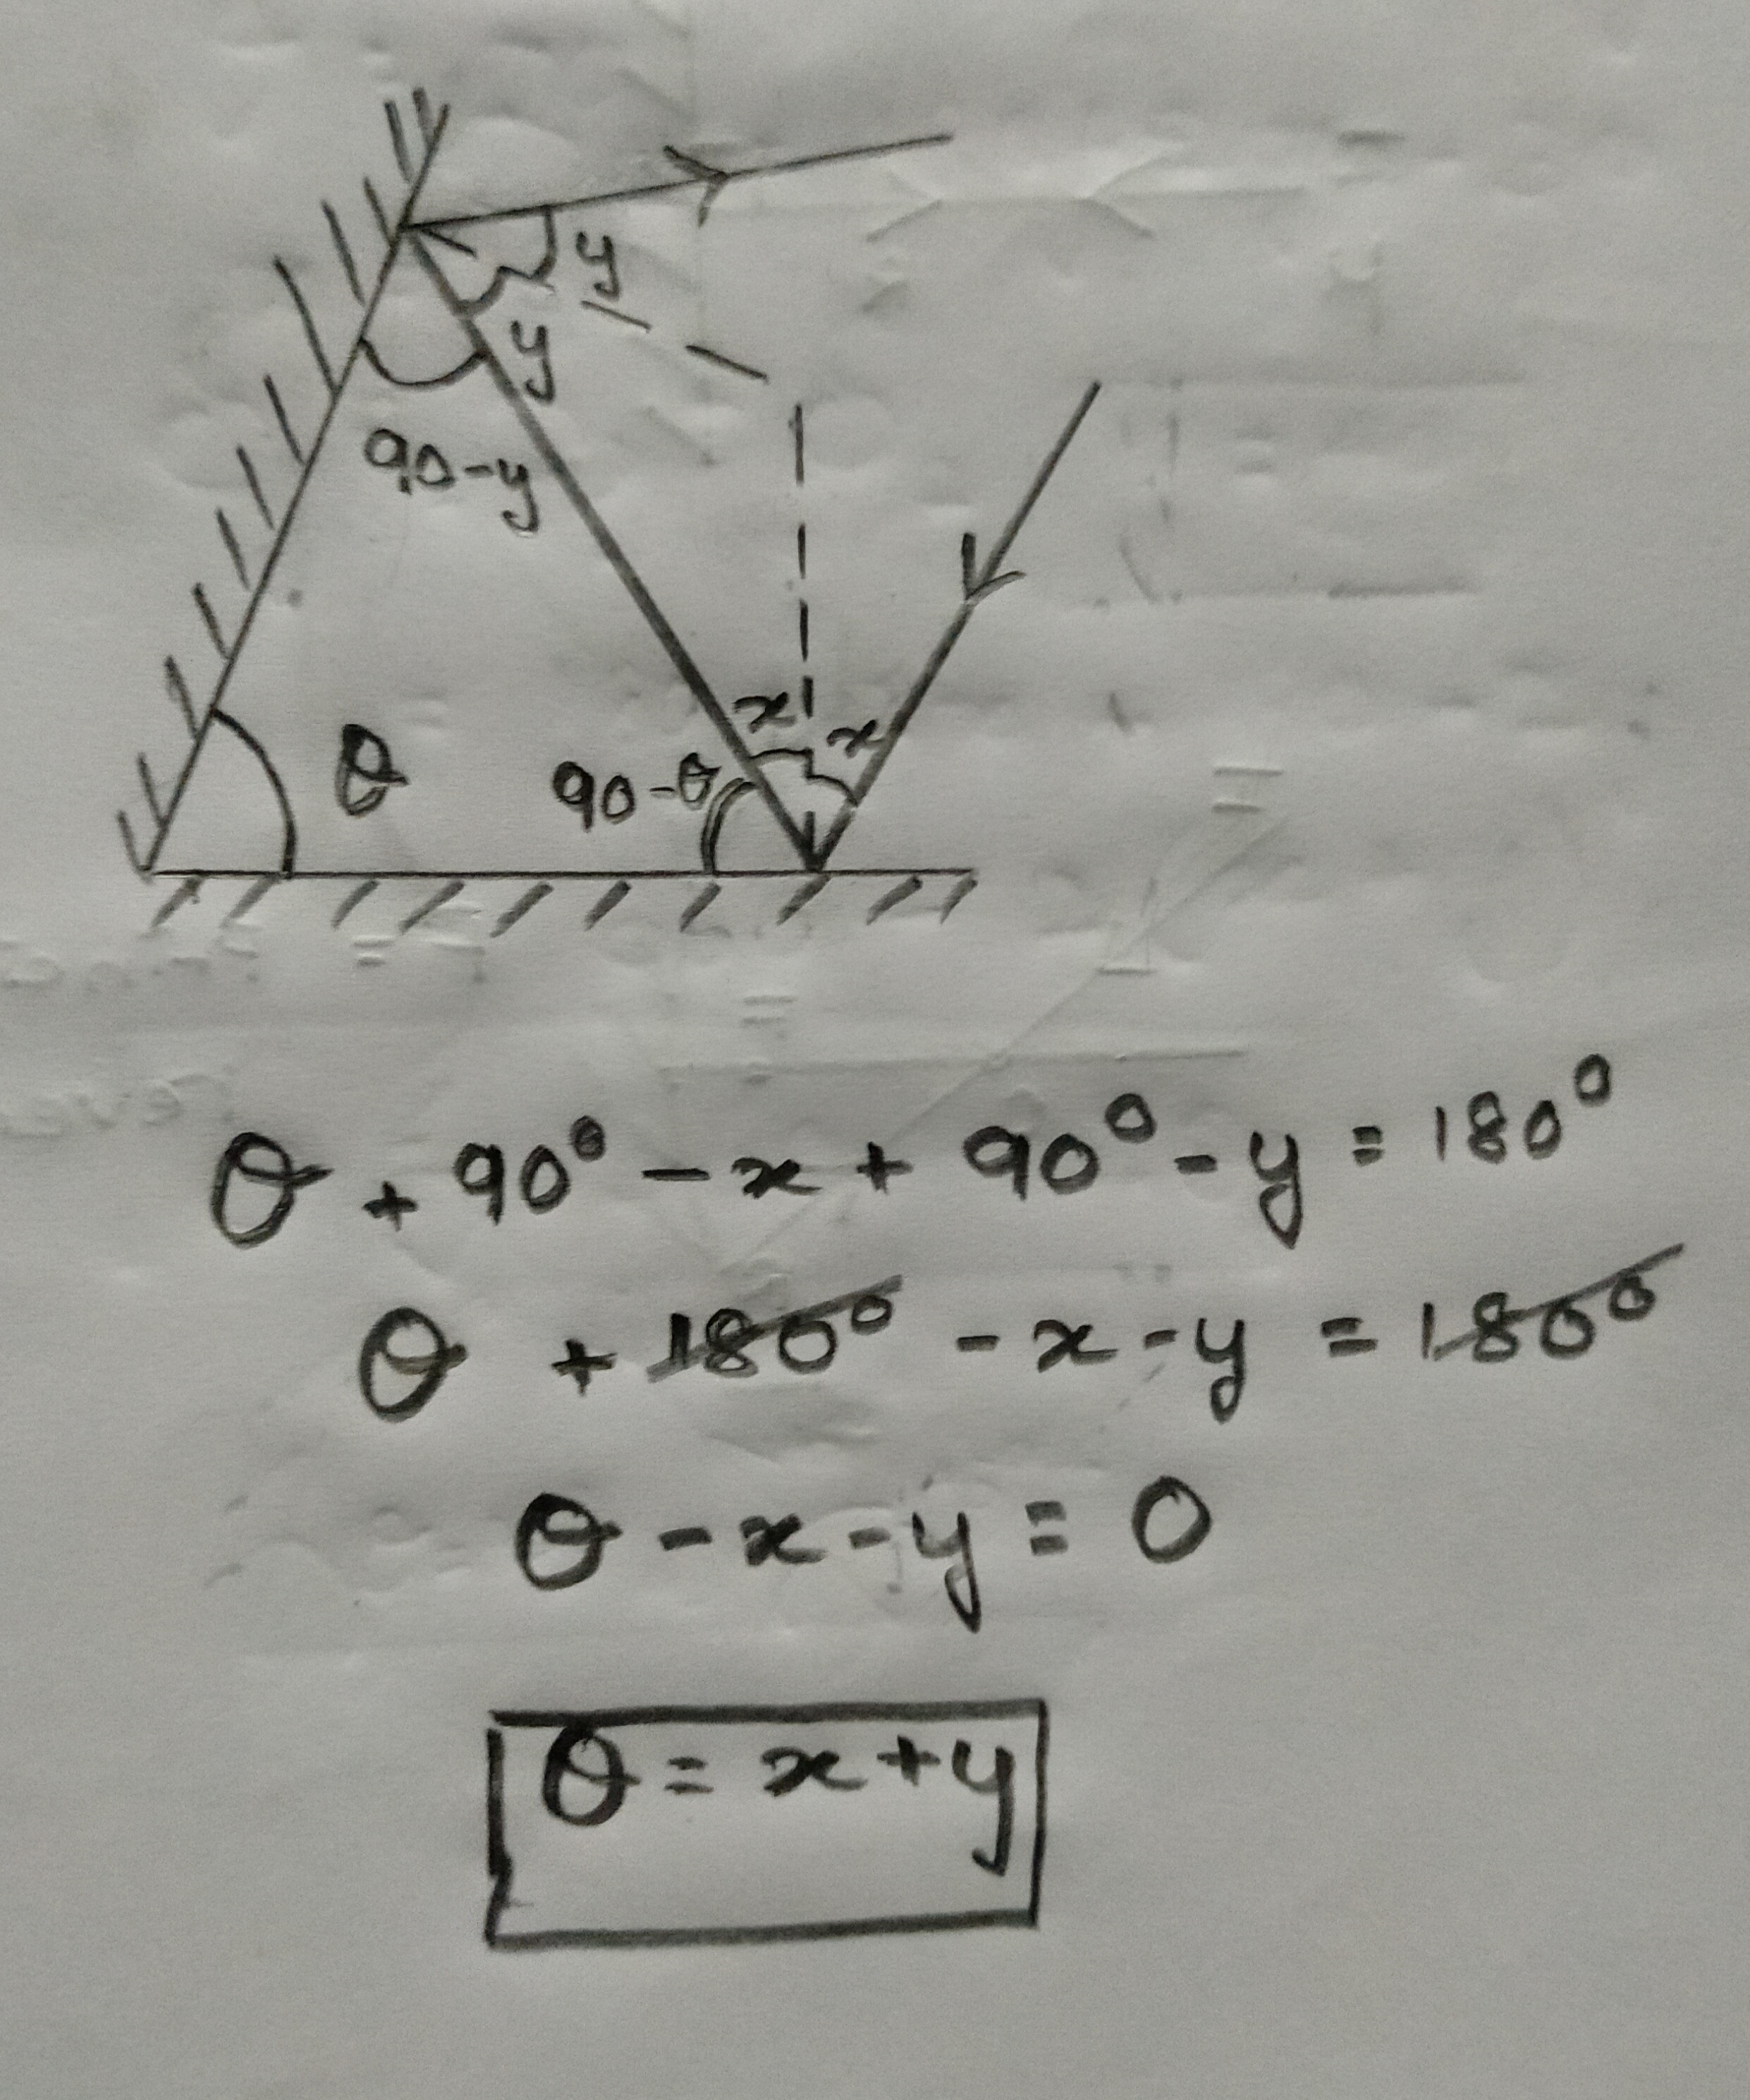 y
y
90-y
x
x
θ
90-θ
θ + 90° - x + 90° - y = 180°
θ + 180° - x - y = 180°
θ - x - y = 0
θ = x + y